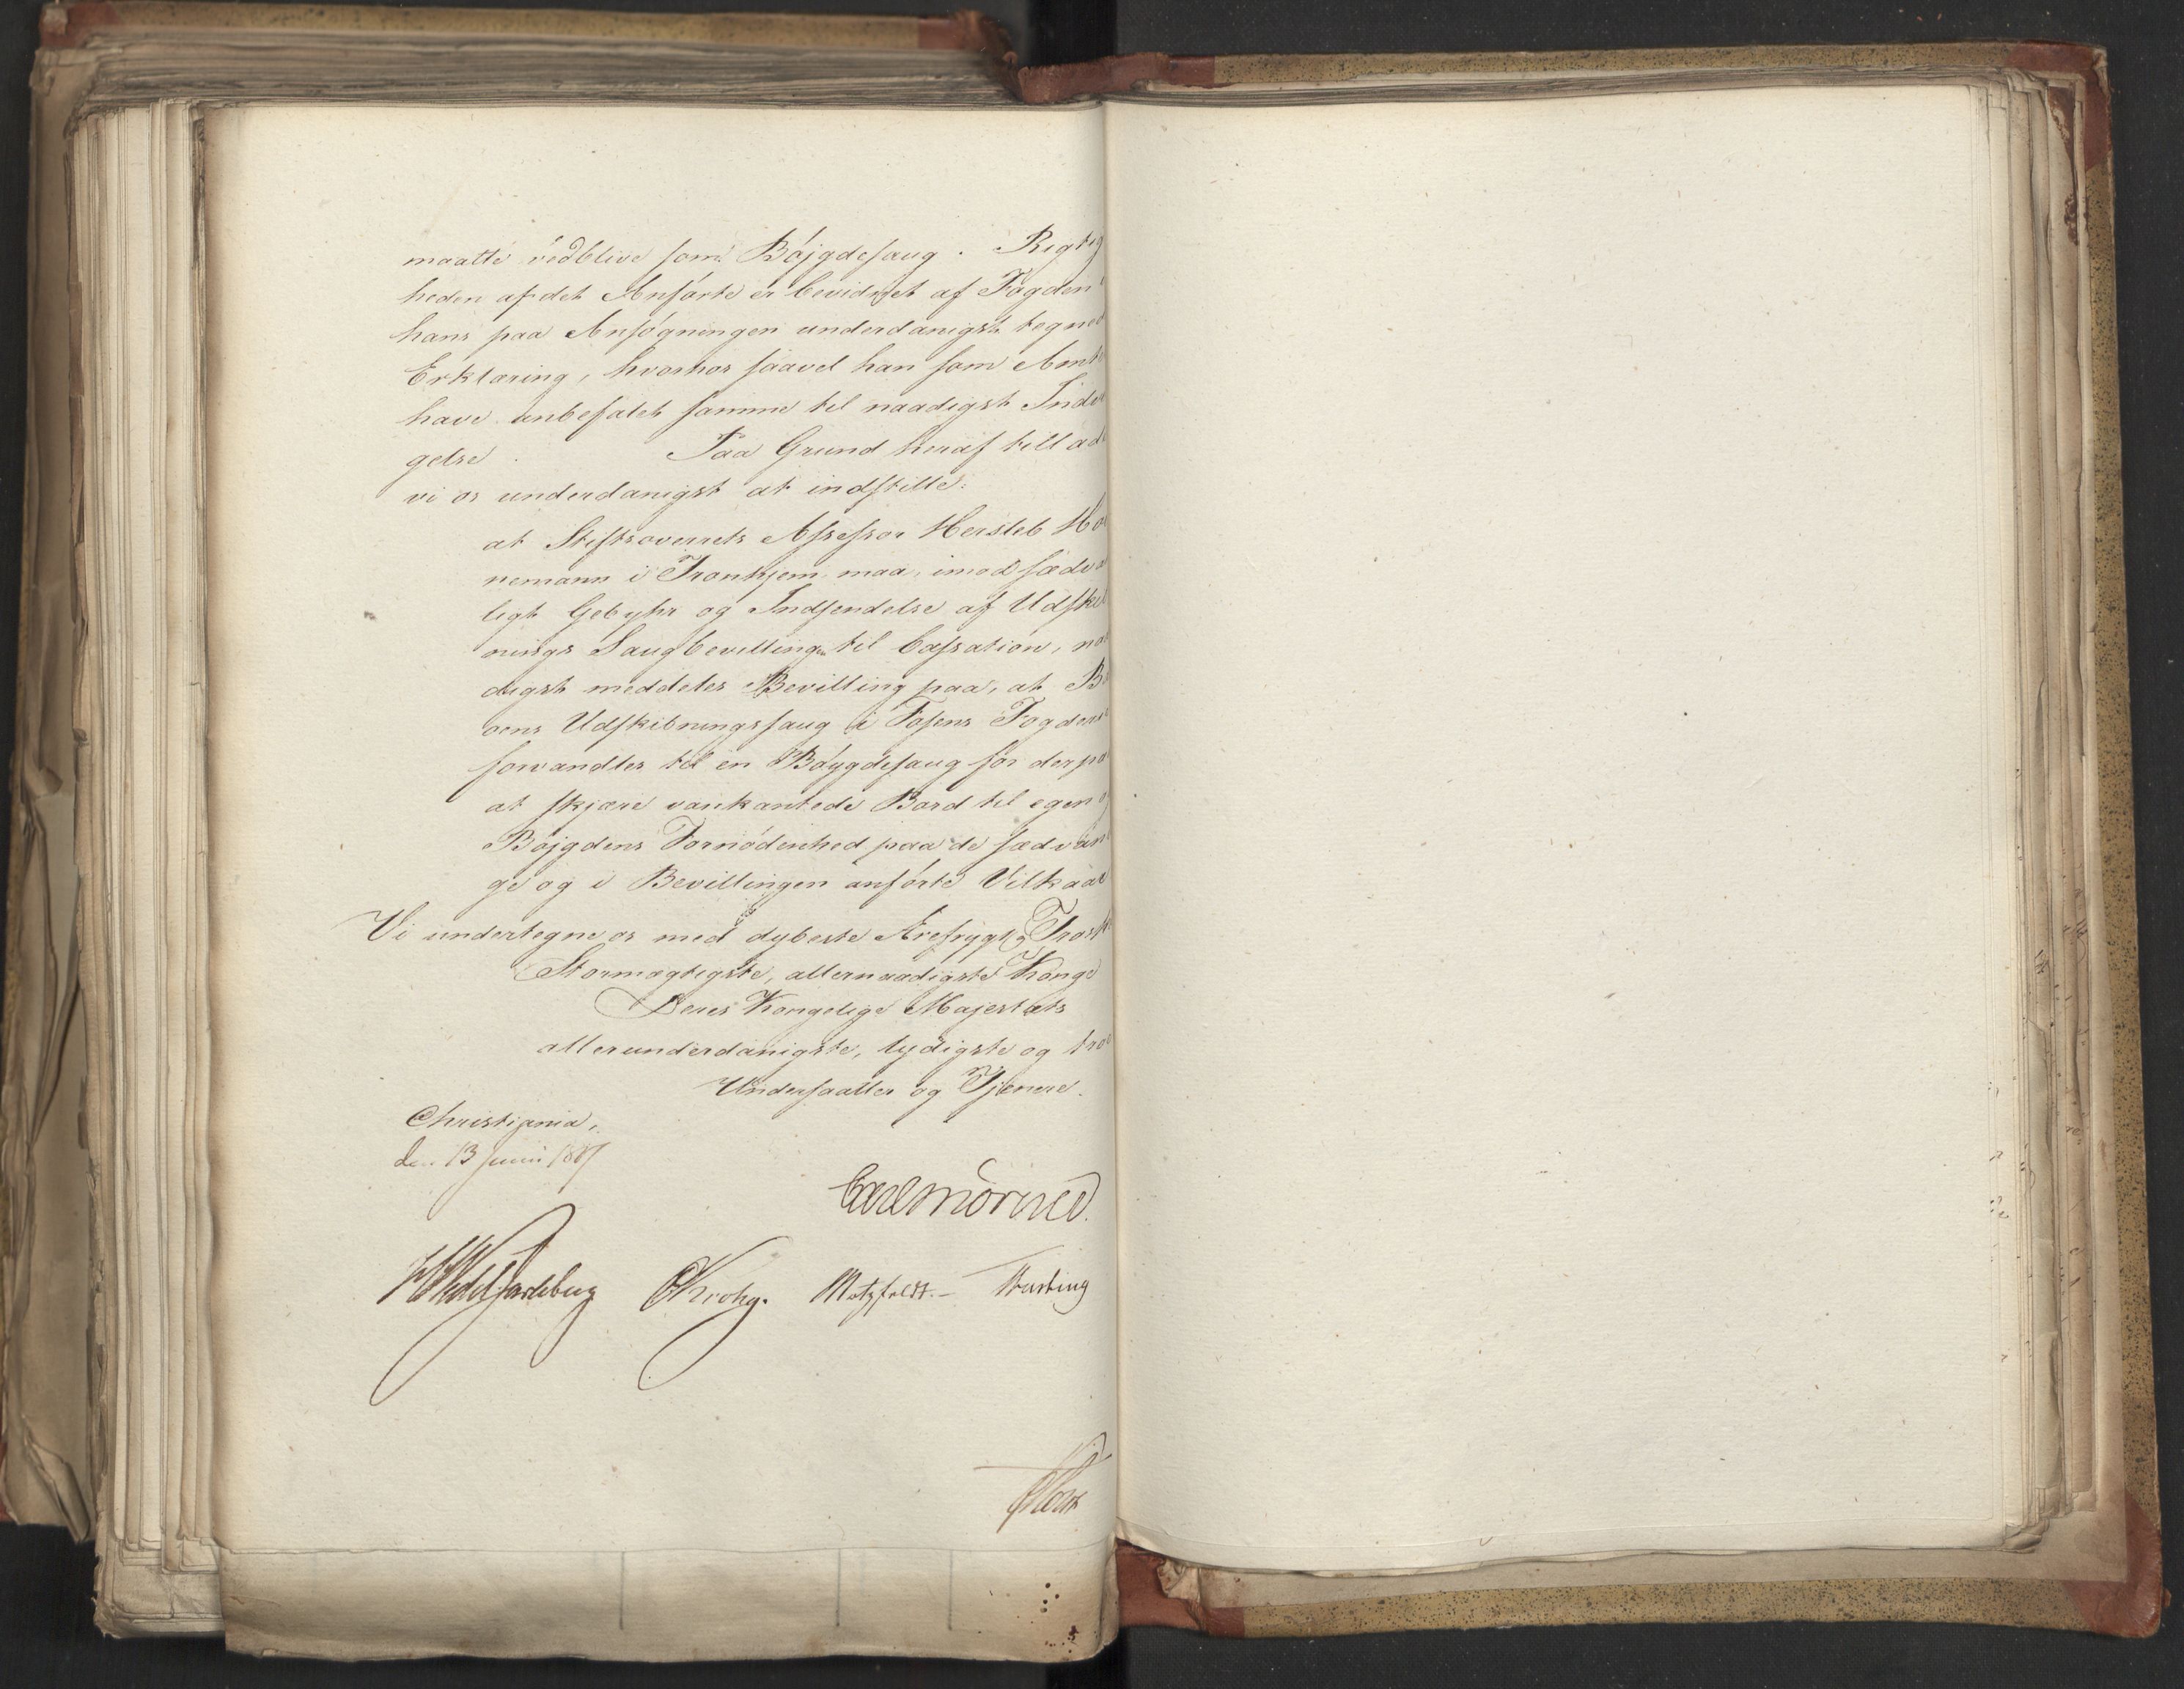 maatte vedblive som Bøjgdesaug. Rigtig
heden af det Anførte er bevidnet af Fogden i
hans paa Ansøgningen underdanigst tegned
Erklæring, hvorhos saavel han som Amt
have anbefalet samme til naadigst Inde
gelse. Paa Grund heraf tillad
vi os underdanigst at indstille:
at Stiftsoverrets Assessor Hersleb Ho
nemann i Tronhjem maa, imod sædva
ligt Gebyhr og Indsendelse af Udskib
nings Saugbevillingen til Cassation, naa
digst meddeles Bevilling paa, at B
oens Udskibningssaug i Fosens Fogderie
forvandles til en Bøygdesaug for derpa
at skjære vankantede Bord til egen og
Bøjgdens Fornødenhed paa de sædvan
ge og i Bevillingen anførte Vilkaar
Vi undertegne os med dybeste Ærefrygt og Trosk
Stormægtigste, allernaadigste Konge
Deres Kongelige Majestæts
allerunderdanigste, lydigste og tro
Undersaatter og Tjenere.
Christiania,
den 13 Junii 1817
Carl Mörner.
Wedel Jarlsberg CKrohg. Motzfeldt.